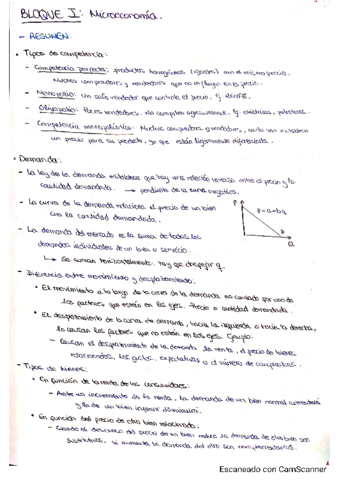 BLOQUE I: Microeconomía.
- RESUMEN:
• Tipos de competencia:
- Competencia perfecta: productos homogéneos (iguales) con el mismo precio.
Muchos compradores y vendedores que no influyen en el precio.
- Monopolio: Un solo vendedor que controla el precio. Ej. RENFE.
- Oligopolio: Pocos vendedores. No compiten agresivamente. Ej: eléctricas, petroleras.
- Competencia monopolística: Muchos compradores y vendedores, cada uno establecen
un precio para su producto, ya que están ligeramente diferenciados.
• Demanda:
- La ley de la demanda establece que hay una relación inversa entre el precio y la
cantidad demandada. → pendiente de la curva negativa.
- La curva de la demanda relaciona el precio de un bien
con la cantidad demandada.
P
P = a - bQ
Q
- La demanda del mercado es la suma de todas las
demandas individuales de un bien o servicio.
↳ Se suman horizontalmente: hay que despejar q.
- Diferencia entre movimiento y desplazamiento:
• El movimiento a lo largo de la curva de la demanda es causado por uno de
los factores que están en los ejes. Precio o cantidad demandada.
• El desplazamiento de la curva de demanda, hacia la izquierda o hacia la derecha,
lo causan los factores que no están en los ejes. Ejemplo:
- Causan el desplazamiento de la demanda: la renta, el precio de bienes
relacionados, los gustos, expectativas o el número de compradores.
- Tipos de bienes:
• En función de la renta de los consumidores:
- Ante un incremento de la renta, la demanda de un bien normal aumentará
y la de un bien inferior disminuirá.
• En función del precio de otro bien relacionado:
- Cuando el descenso del precio de un bien reduce la demanda de otro bien son
sustitutivos, si aumenta la demanda del otro son complementarios.
Escaneado con CamScanner